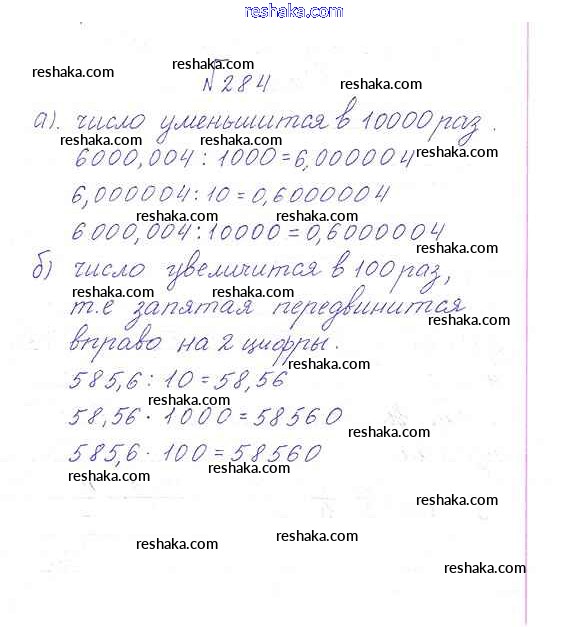 reshaka.com
reshaka.com
reshaka.com
№284
reshaka.com
а). число уменьшится в 10000 раз.
reshaka.com reshaka.com
reshaka.com
6000,004 : 1000 = 6,000004
6,000004 : 10 = 0,6000004
reshaka.com reshaka.com
6000,004 : 10000 = 0,6000004
reshaka.com
б) число увеличится в 100 раз,
reshaka.com reshaka.com
т.е запятая передвинится
reshaka.com
вправо на 2 цифры.
reshaka.com
585,6 : 10 = 58,56
reshaka.com
58,56 · 1000 = 58560
reshaka.com
585,6 · 100 = 58560
reshaka.com
reshaka.com
reshaka.com
reshaka.com
reshaka.com
reshaka.com